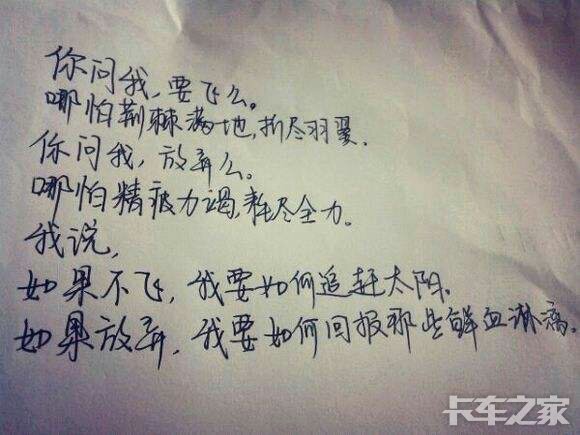 你问我,要飞么。
哪怕荆棘满地,折尽羽翼.
你问我,放弃么。
哪怕精疲力竭,耗尽全力。
我说,
如果不飞,我要如何追赶太阳.
如果放弃,我要如何回报那些鲜血淋漓。
卡车之家